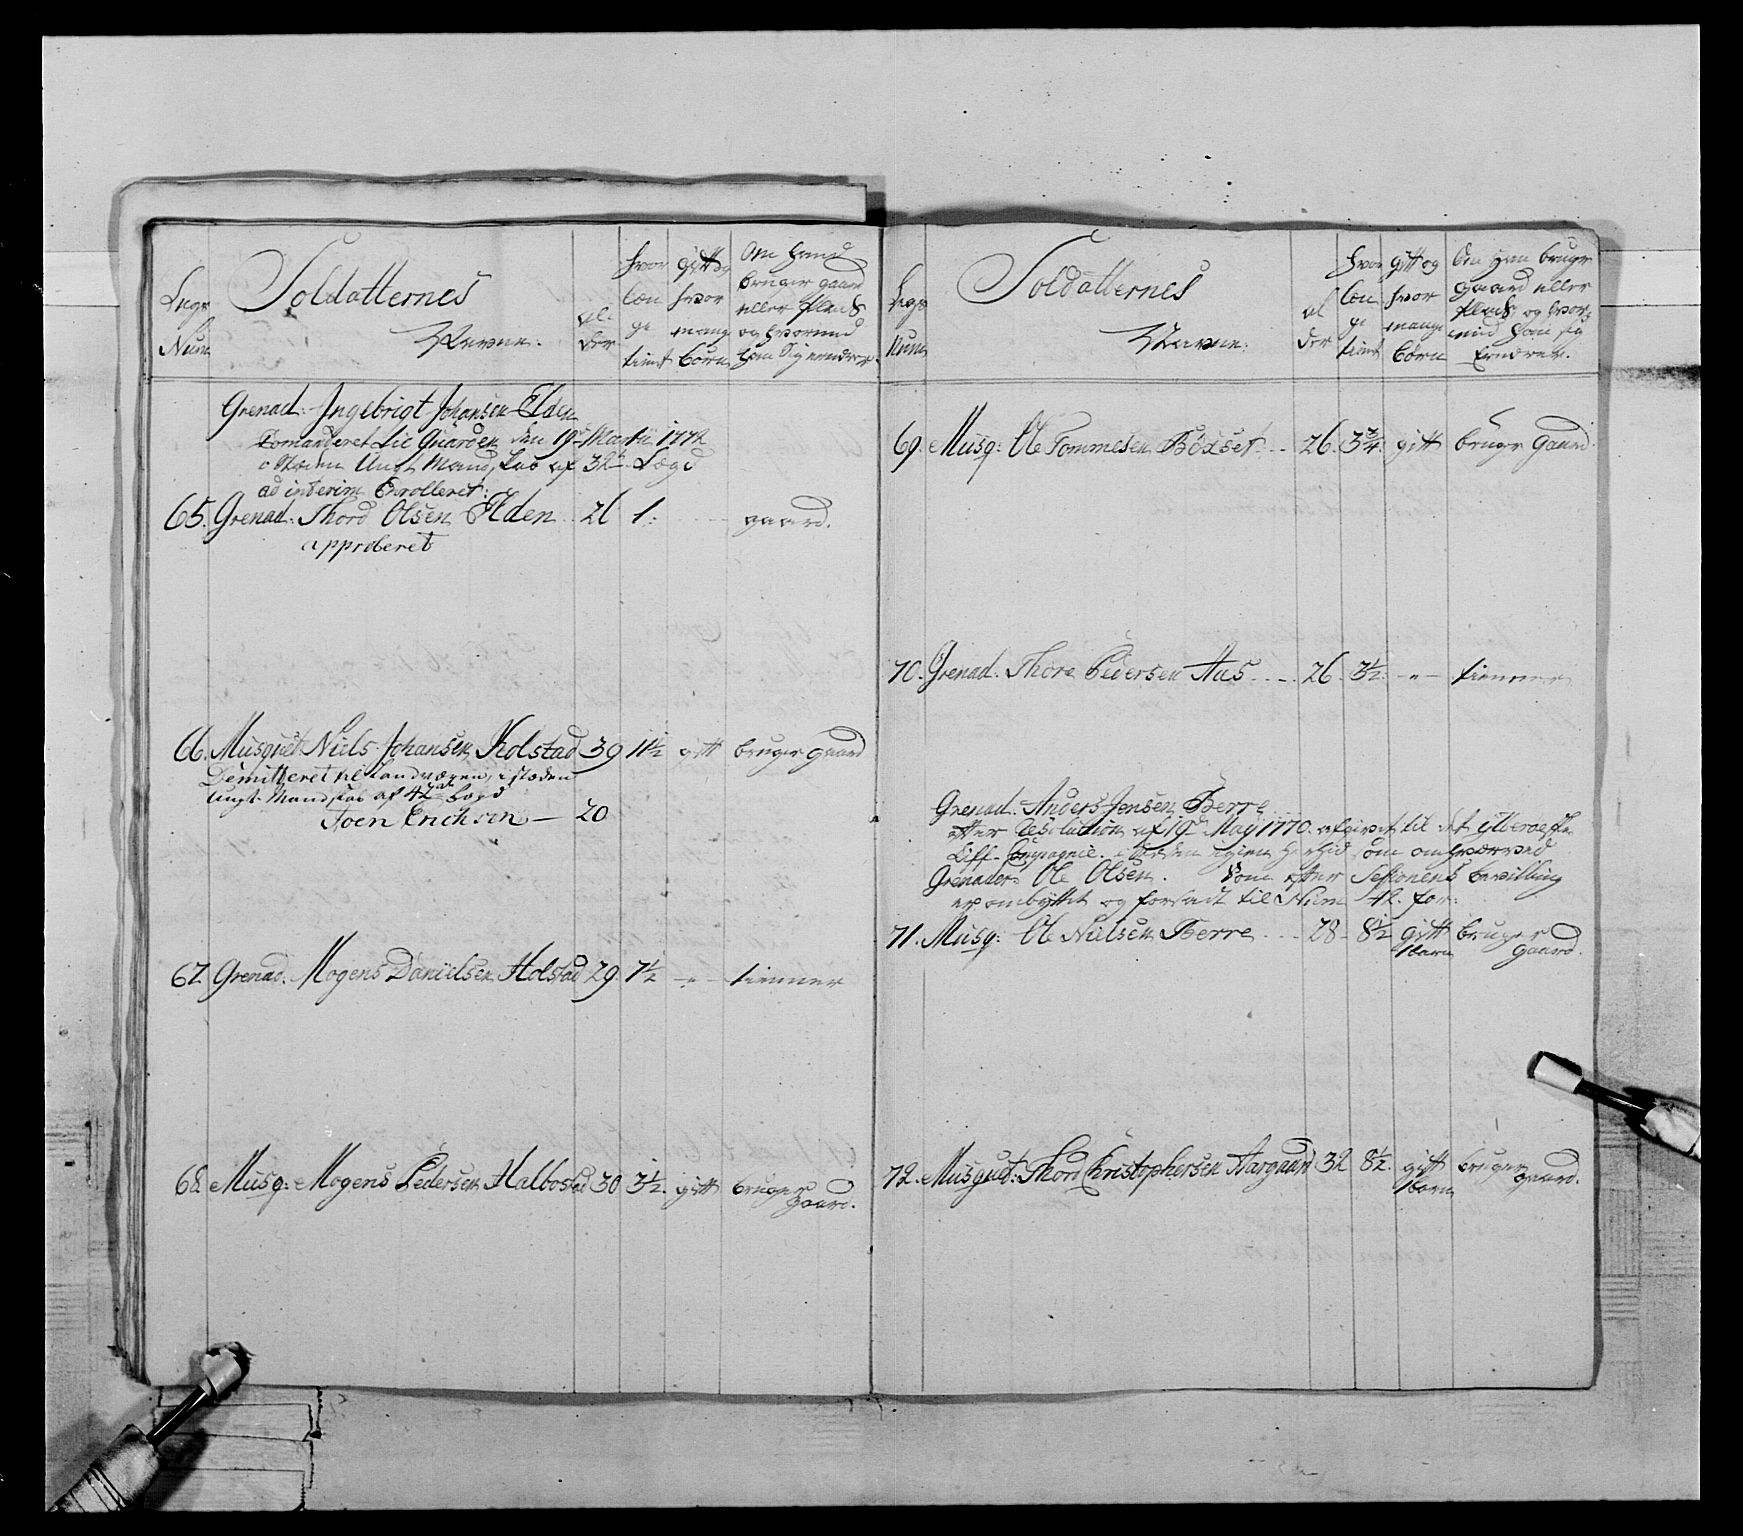 Legs Num
Soldatternes Navne.
al: der
hvor læn ge tient
gift og hvor mang børn
Om hand bruger gaard eller Plads og hvormed han Sig ernærer.
Grenad: Ingebrigt Johansen Elden
Comanderet til Guarden den 19de Martii 1772
i Stæden Ungt Mandskab af 32te Lægd
ad interim Enrolleret:
65. Grenad: Thord Olsen Elden 26 1: gaard.
approberet
66. Musquet: Niels Johansen Kolstad 39 11½ gift bruger gaard
Demitteret til Landværen, i stæden
Ungt Mandskab af 42de Lægd
Joen Erichsen — 20
67. Grenad. Mogens Danielsen Holstad 29. 7½ -"- tienner
68. Musq: Mogens Pedersen Halbostad 30 3½. gift bruger
gaard.
Legs Num
Soldatternes Navne:
al der
hvor læn ge tient
gift og hvor mange børn
Om Han bruger gaard eller Plads og hvor: med Han sig Ernærer.
69. Musq: Ole Tommesen Bodset.. 26. 3¾. gift bruger Gaard.
70. Grenad. Thore Pedersen Aas... 26. 3½. -"- tienner
Grenad. Anders Jensen Berre
efter Resolution af 19de May 1770. afgivet til det
Liff- Compagnie. i Stæden igien som omhværved
Grenader Ole Olsen. Som efter Sessionens bevilling
er ombyttet og forsadt til Num 42. for:
71. Musq: Ole Nielsen Berre... 28. 8½ gift bruger
1 barn Gaard.
72. Musquet: Thord Christophersen Aargaard 32 8½. gift bruger
1 barn gaard.